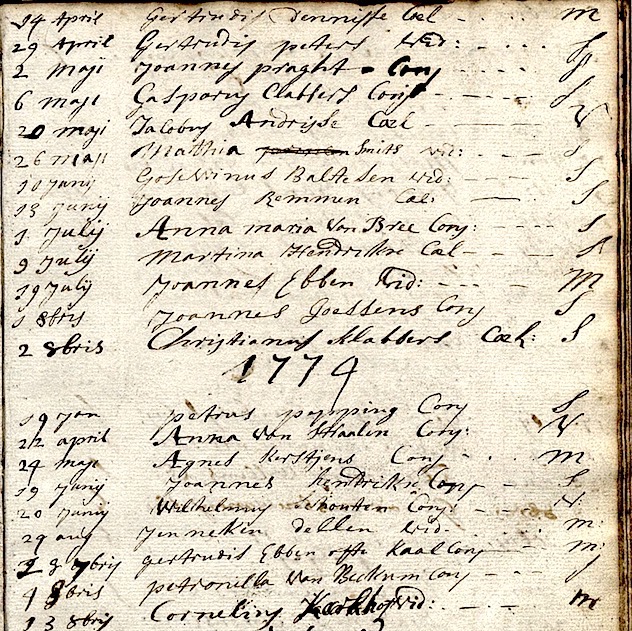 14 April Gertrudis Dennisse Cœl - . . . m
29 April Gertrudis peters Wid: - . . . S
2 maji Joannes praght - Conj - . . . S
6 maji Gasparus Clabbers Conj - - - S
20 maji Jacobus Andrisse Cœl - - - V
26 maji Mathia Smits wid: - - - S
10 junij Goswinus Baltesen wid: - - - S
13 junij Joannes Remmen Cæl: - S
1 Julij Anna maria van Bree Conj: - - - S
9 Julij martina Hendrikse Cæl - - - S
19 July Joannes Ebben Wid: - - - m
1 8bris Joannes Joessens Conj S
2 8bris Christianus Klabbers Cœl: S
1774
19 Jan petrus popping Conj S
22 april Anna van Haalen Conj: V
24 maji Agnes Kerstjens Conj - . . m
19 Junij Joannes hendrikse Conj - - - S
20 Junij Wilhelmus schouten Conj: - - V
29 aug Jenneken dellen wid: - - m:
7bris gertrudis Ebben offte Kaal Conj - - m:
4 8bris petronella van Beckum Conj - - -
13 8bris Cornelius Kerkhof Wid: - . - . m